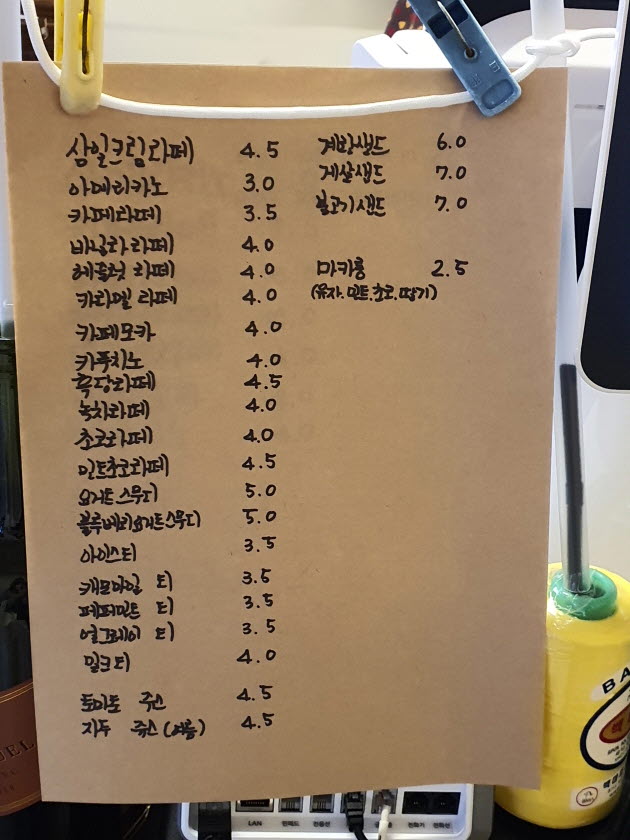 삼일크림라떼 4.5
아메리카노 3.0
카페라떼 3.5
바닐라라떼 4.0
헤즐럿 라떼 4.0
카라멜 라떼 4.0
카페모카 4.0
카푸치노 4.0
흑당라떼 4.5
녹차라떼 4.0
초코라떼 4.0
민트초코라떼 4.5
요거트스무디 5.0
블루베리요거트스무디 5.0
아이스티 3.5
캐모마일 티 3.5
페퍼민트 티 3.5
얼그레이 티 3.5
밀크티 4.0
토마토 쥬스 4.5
자두 쥬스(여름) 4.5
계방샌드 6.0
게살샌드 7.0
불고기샌드 7.0
마카롱 2.5
(유자.민트.초코.딸기)
LAN
전화기 전화선
BA
UEL